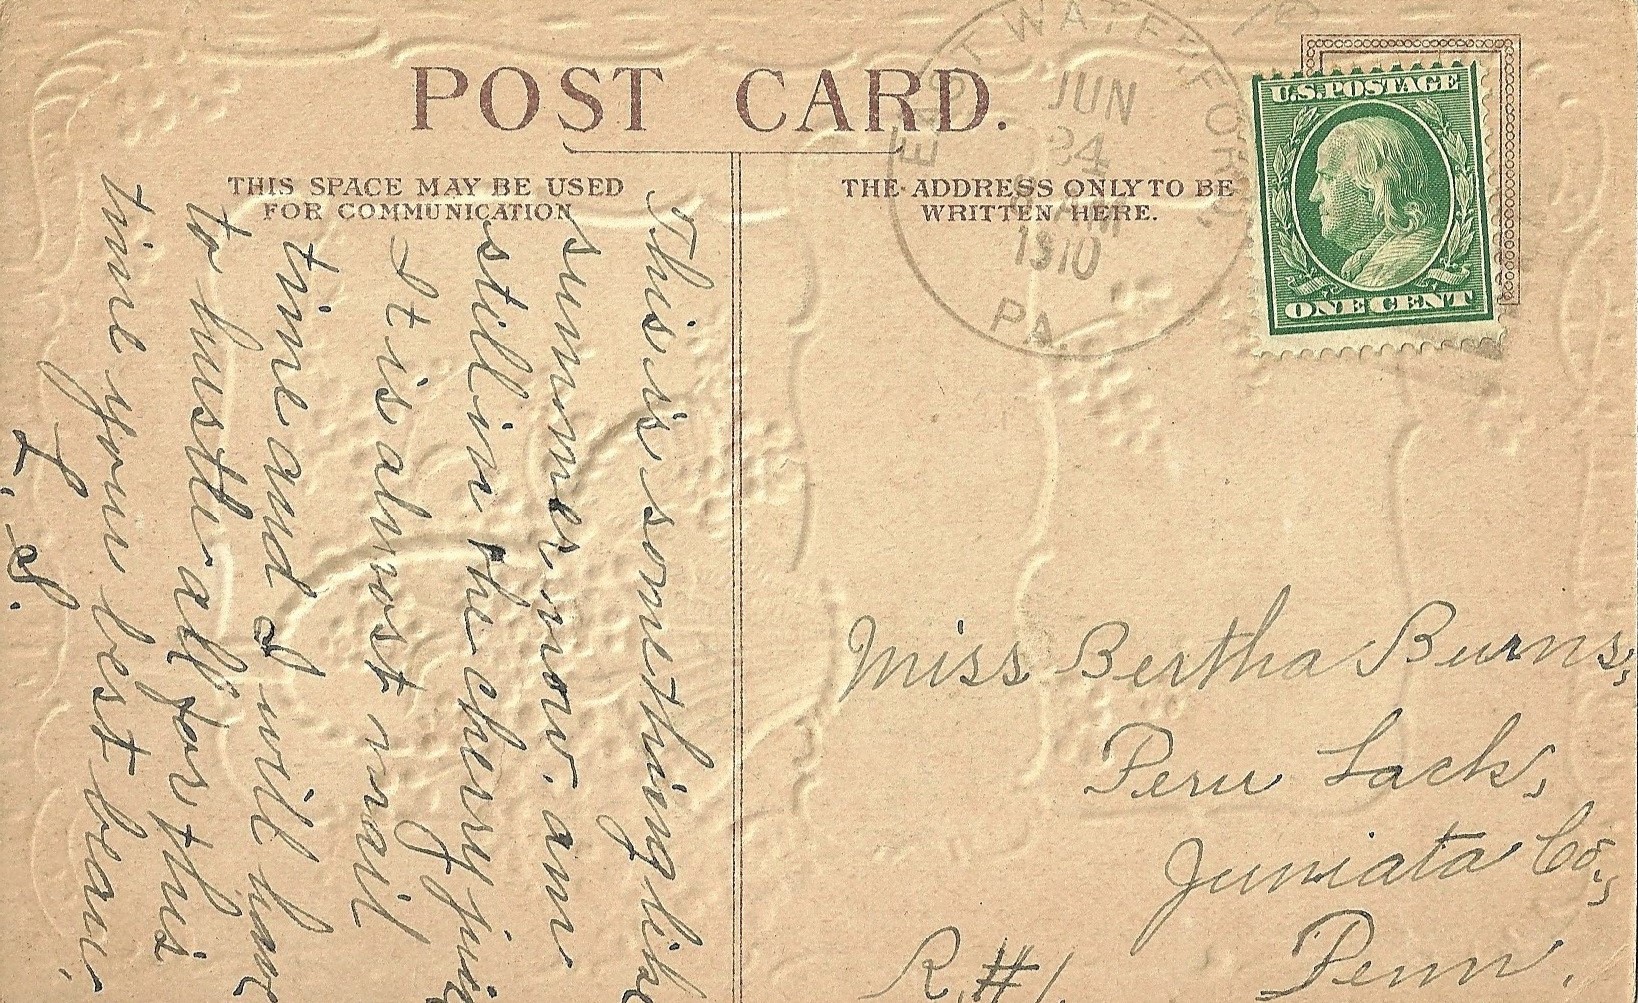 POST CARD.
THIS SPACE MAY BE USED
FOR COMMUNICATION
THE ADDRESS ONLY TO BE
WRITTEN HERE.
EAST WATERFORD,
JUN
24
AM
1910
PA.
U.S. POSTAGE
ONE CENT
This is something like
summer now. am
still in the cherry
It is almost mail
time and I will have
to hustle all for this
time your best beau.
L. S.
Miss Bertha Burns,
Peru Lack,
Juniata Co.,
Penn.
R. #1.